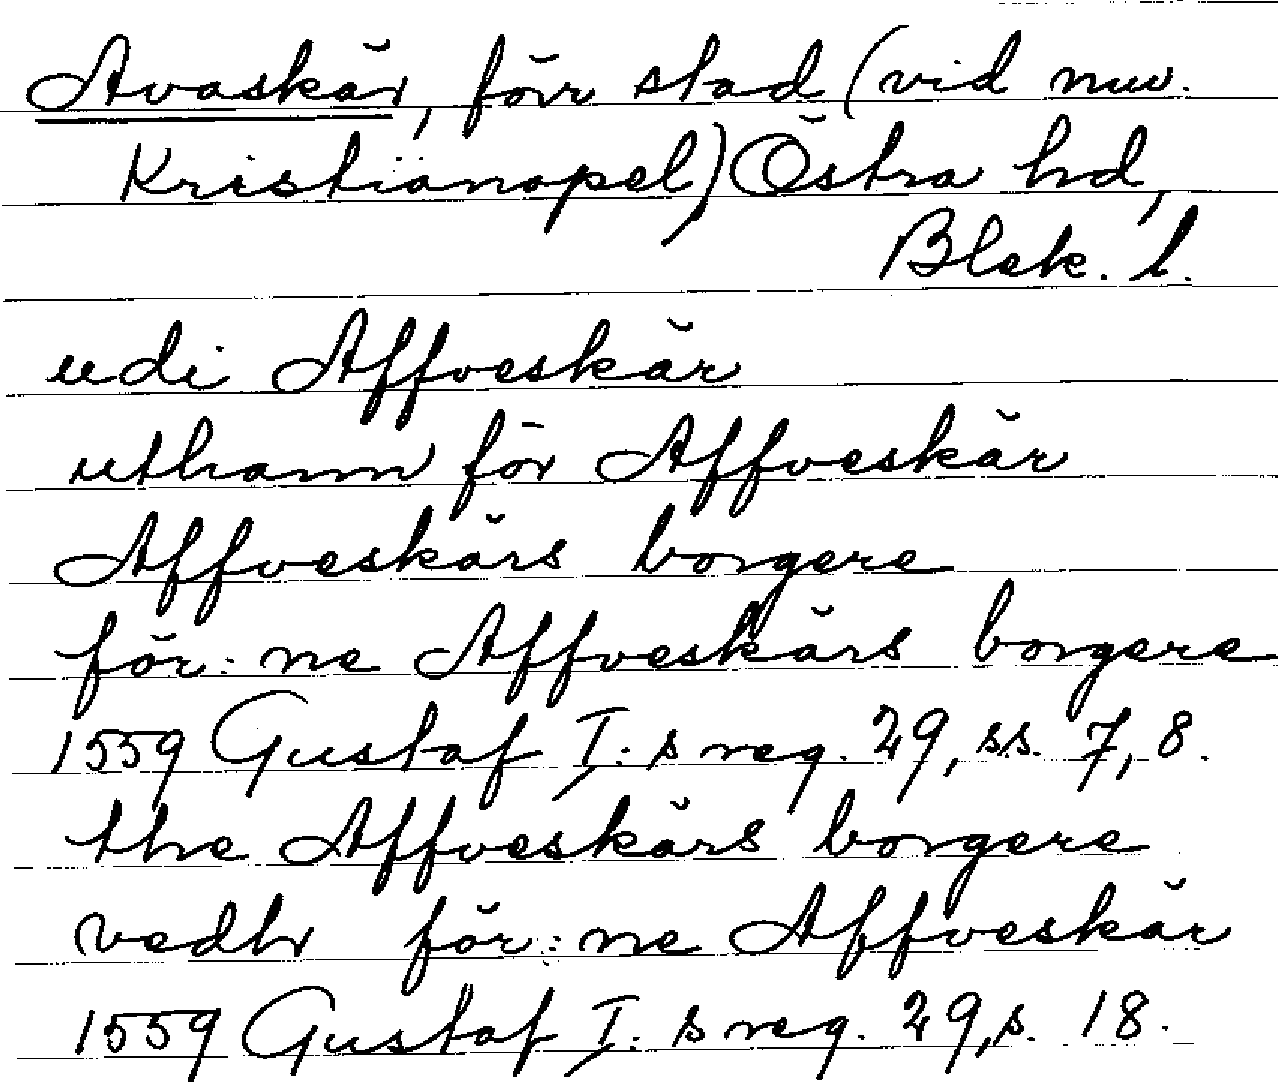 Avaskär, förr stad (vid nuv.
Kristianopel) Östra hd,
Blek. l.
udi Affveskär
uthann för Affveskär
Affveskärs borgere
för: ne Affveskärs borgere
1559 Gustaf I: s reg. 29, ss. 7, 8.
the Affveskärs borgere
vedh för: ne Affveskär
1559 Gustaf I: s reg. 29, s. 18.